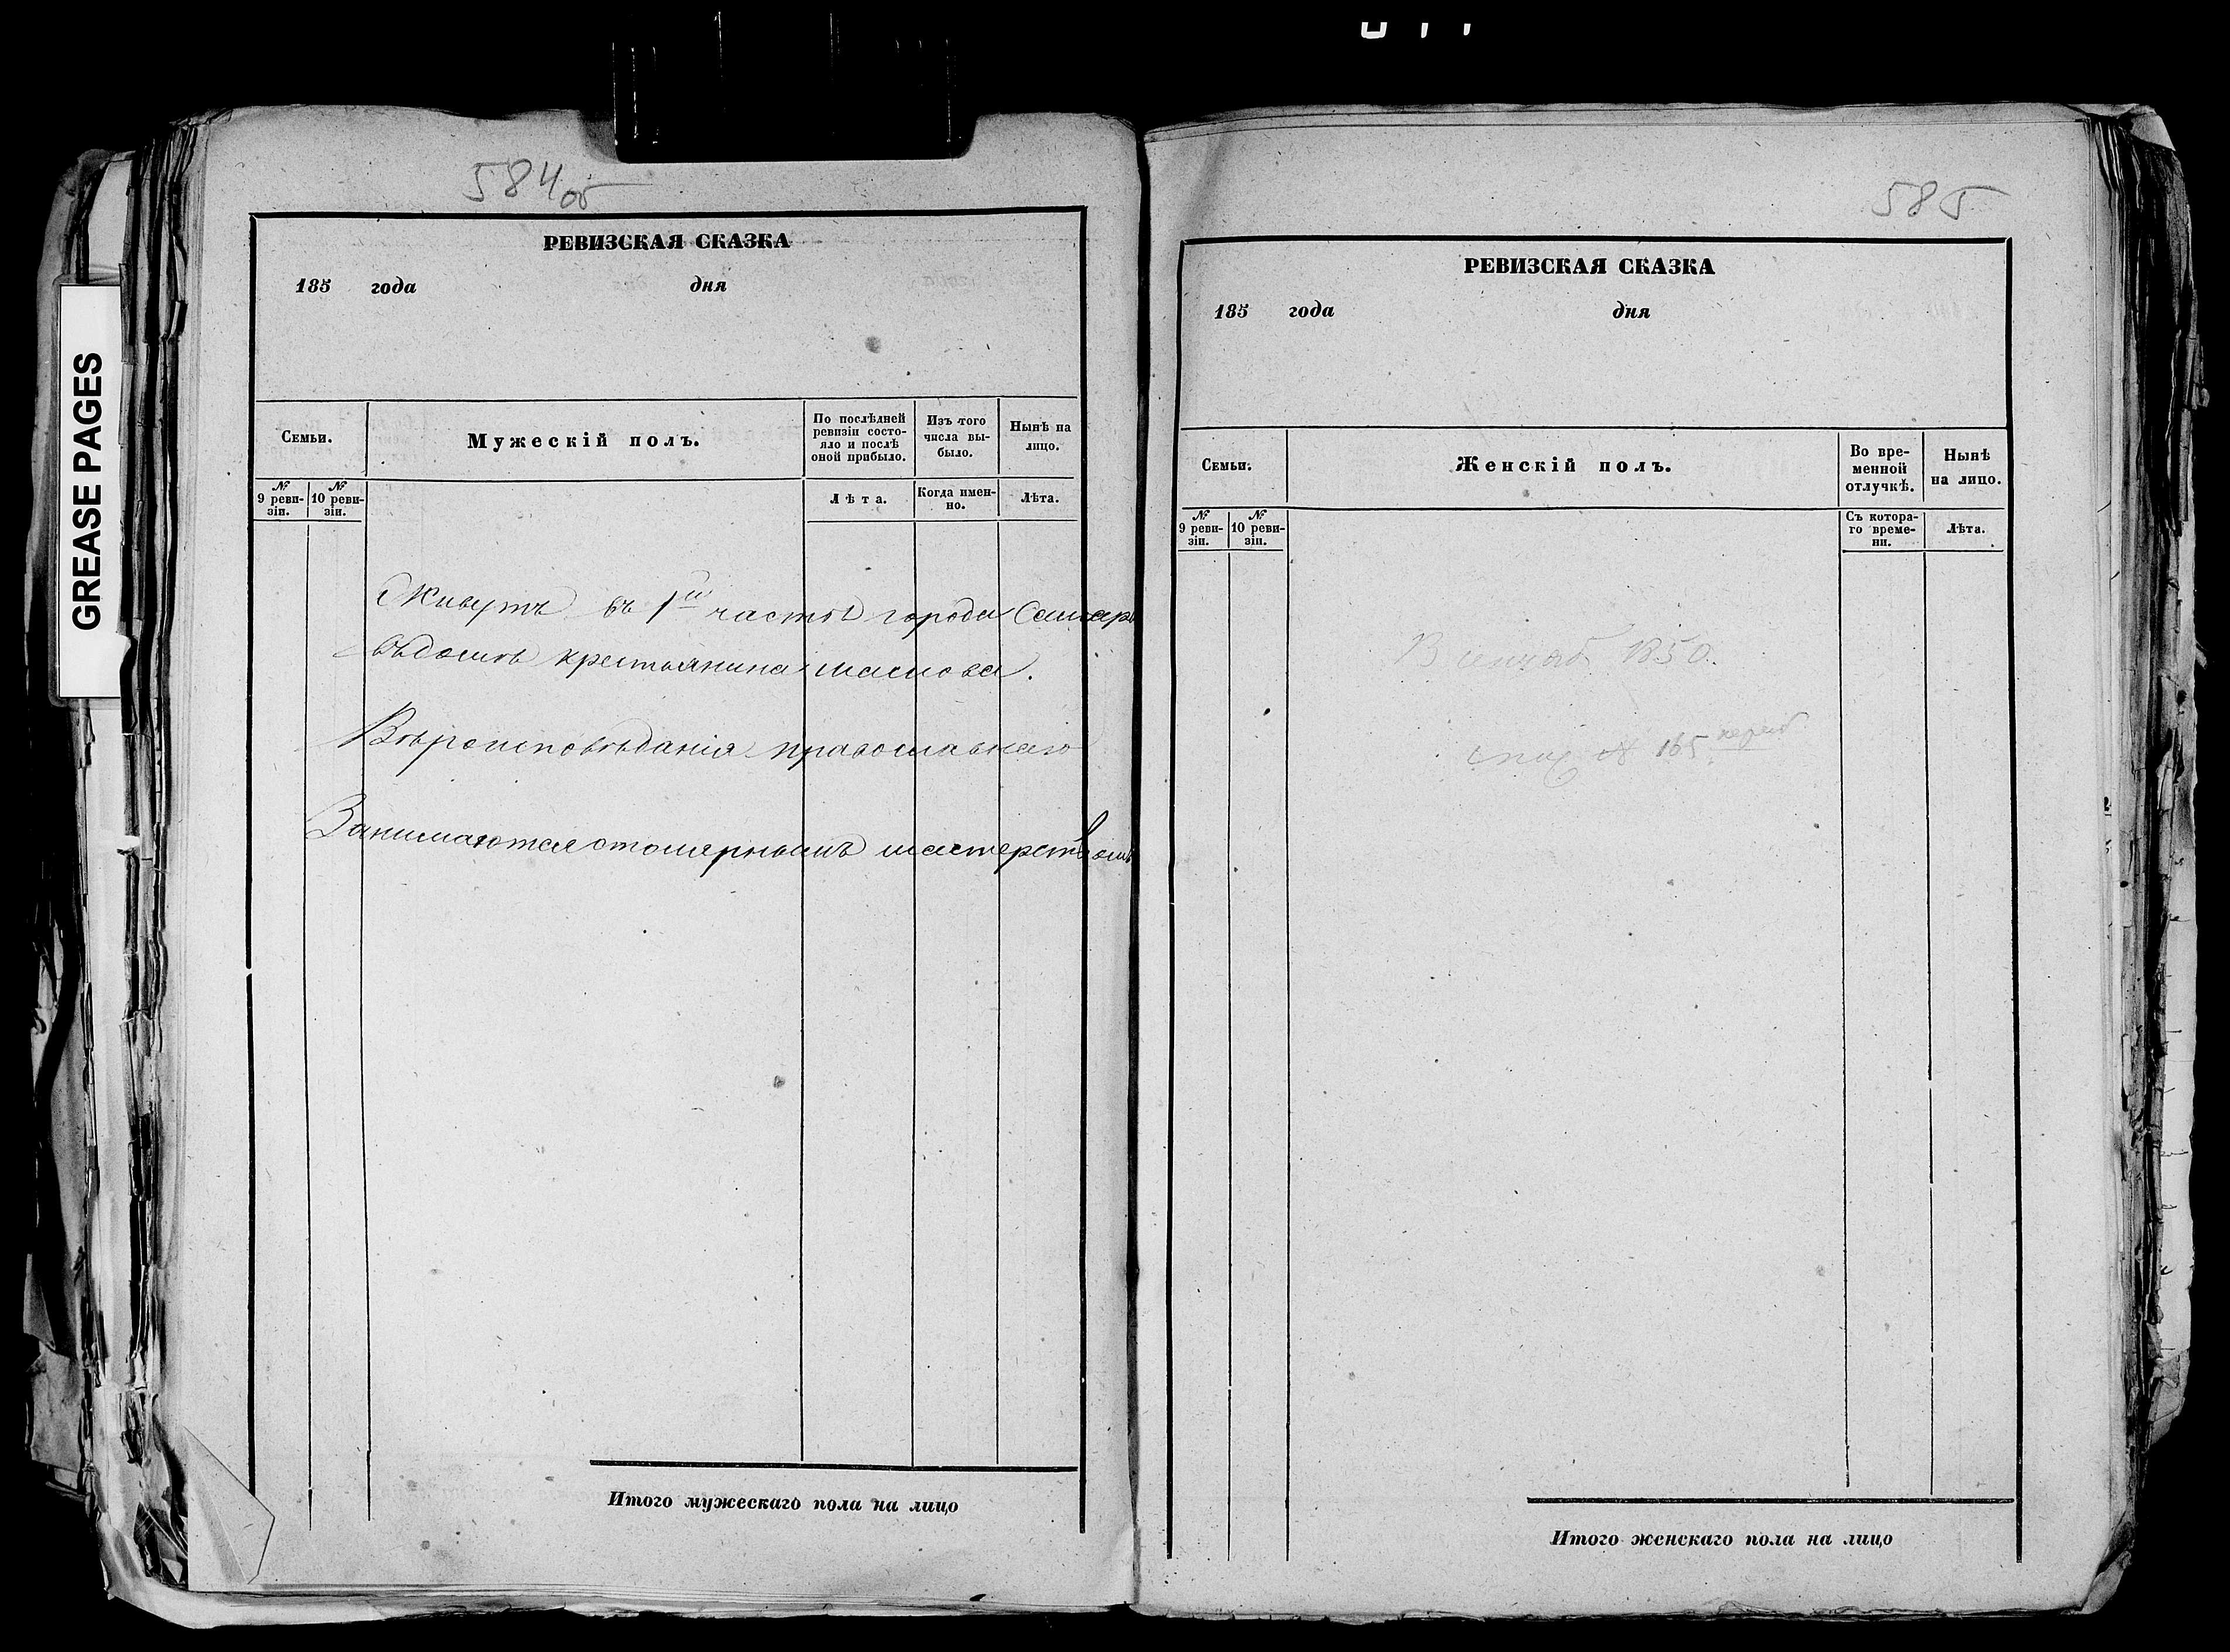 GREASE PAGES
584 об
РЕВИЗСКАЯ СКАЗКА
185 года дня
Семьи.
Мужескій полъ.
По послѣдней ревизіи состо-
яло и послѣ оной прибыло.
Изъ того числа вы-
было.
Нынѣ на лицо.
№ 9 реви-
зіи.
№ 10 реви-
зіи.
Лѣта.
Когда имен-
но.
Лѣта.
Живутъ въ 1й части города Самары
въ домѣ крестьянина
Вѣроисповѣданія православнаго
Занимаются столярнымъ мастерствомъ
Итого мужескаго пола на лицо
585
РЕВИЗСКАЯ СКАЗКА
185 года дня
Семьи.
Женскій полъ.
Во вре-
менной
отлучкѣ.
Нынѣ
на лицо.
№ 9 реви-
зіи.
№ 10 реви-
зіи.
Съ котора-
го време-
ни.
Лѣта.
В 1850.
№ 165
Итого женскаго пола на лицо